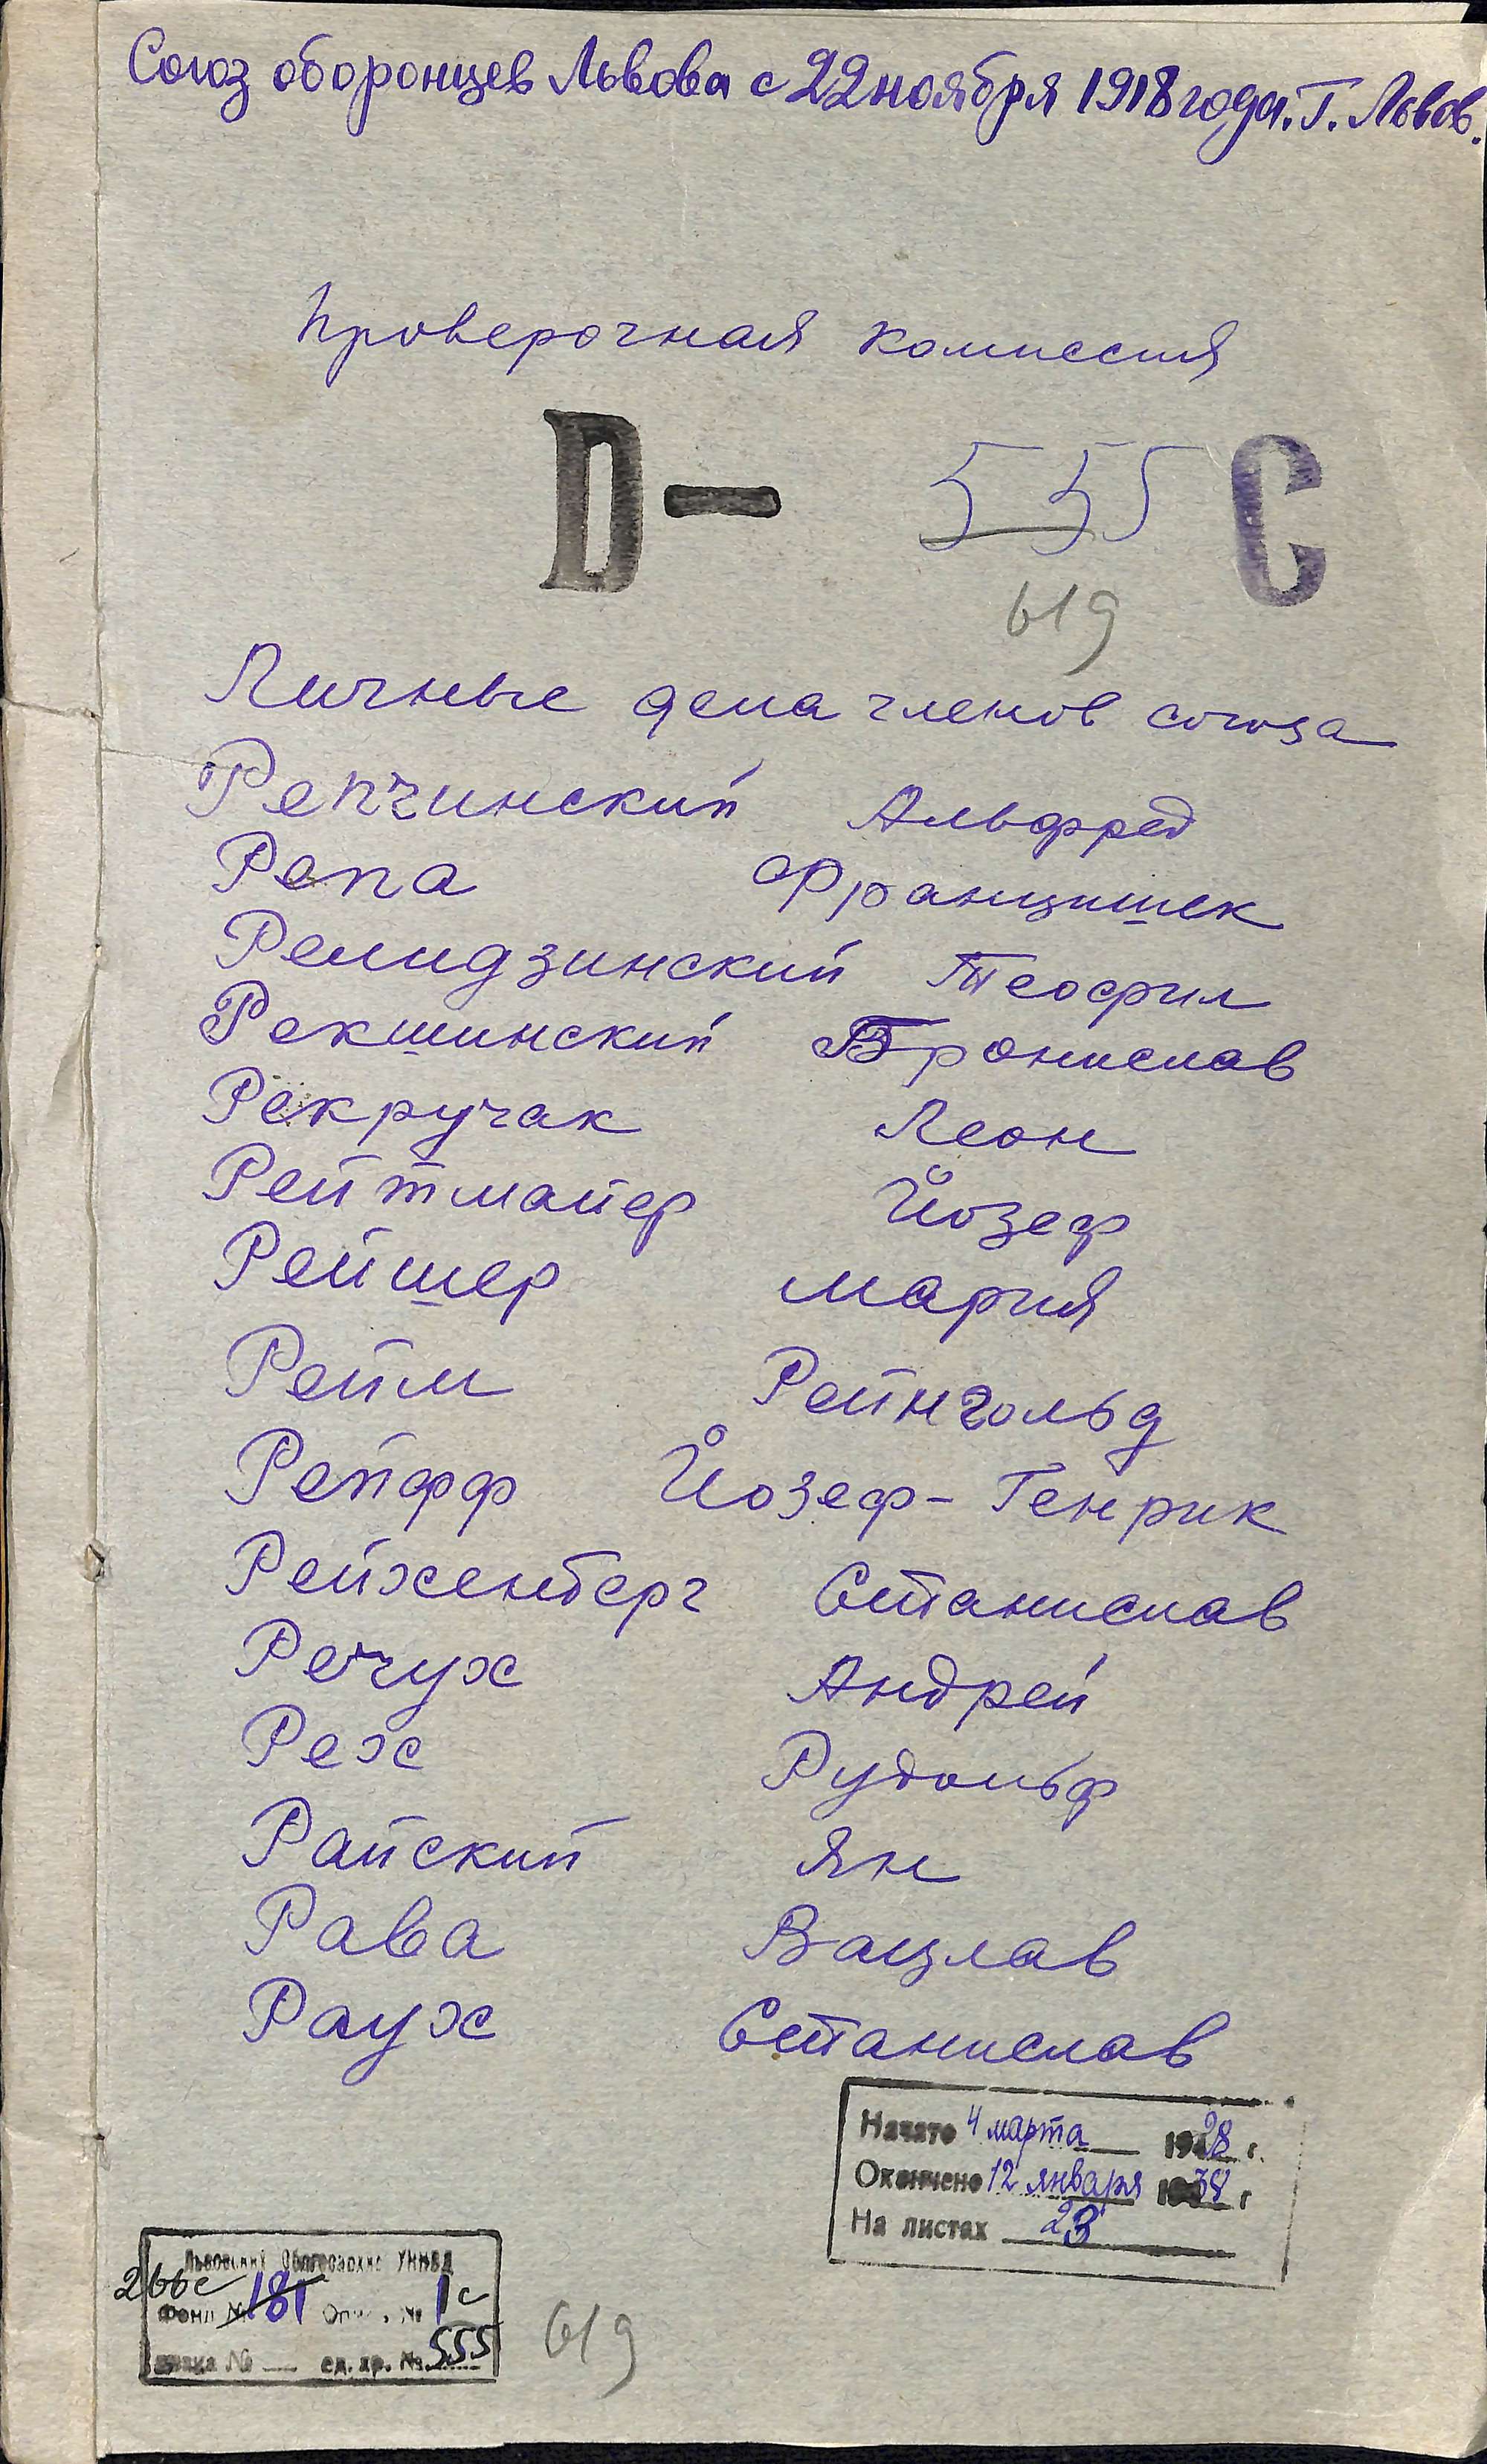 Союз оборонцев Львова с 22 ноября 1918 года. Г. Львов.
Проверочная комиссия
D— 555 С
619
Личные дела членов союза
Репчинский Альфред
Репа Францишек
Ремидзинский Теофил
Рекшинский Бронислав
Рекручак Леон
Рейтмайер Йозеф
Рейшер Мария
Рейм Рейнгольд
Рейфф Йозеф-Генрик
Рейхенберг Станислав
Речух Андрей
Рех Рудольф
Райский Ян
Рава Вацлав
Раух Станислав
Начато 4 марта 1928 г.
Окончено 12 января 1938 г
На листах 23
Львовский Облгосархив УНКВД
266с
Фонд № 181 Опись № 1с
ед. хр. № 555
619